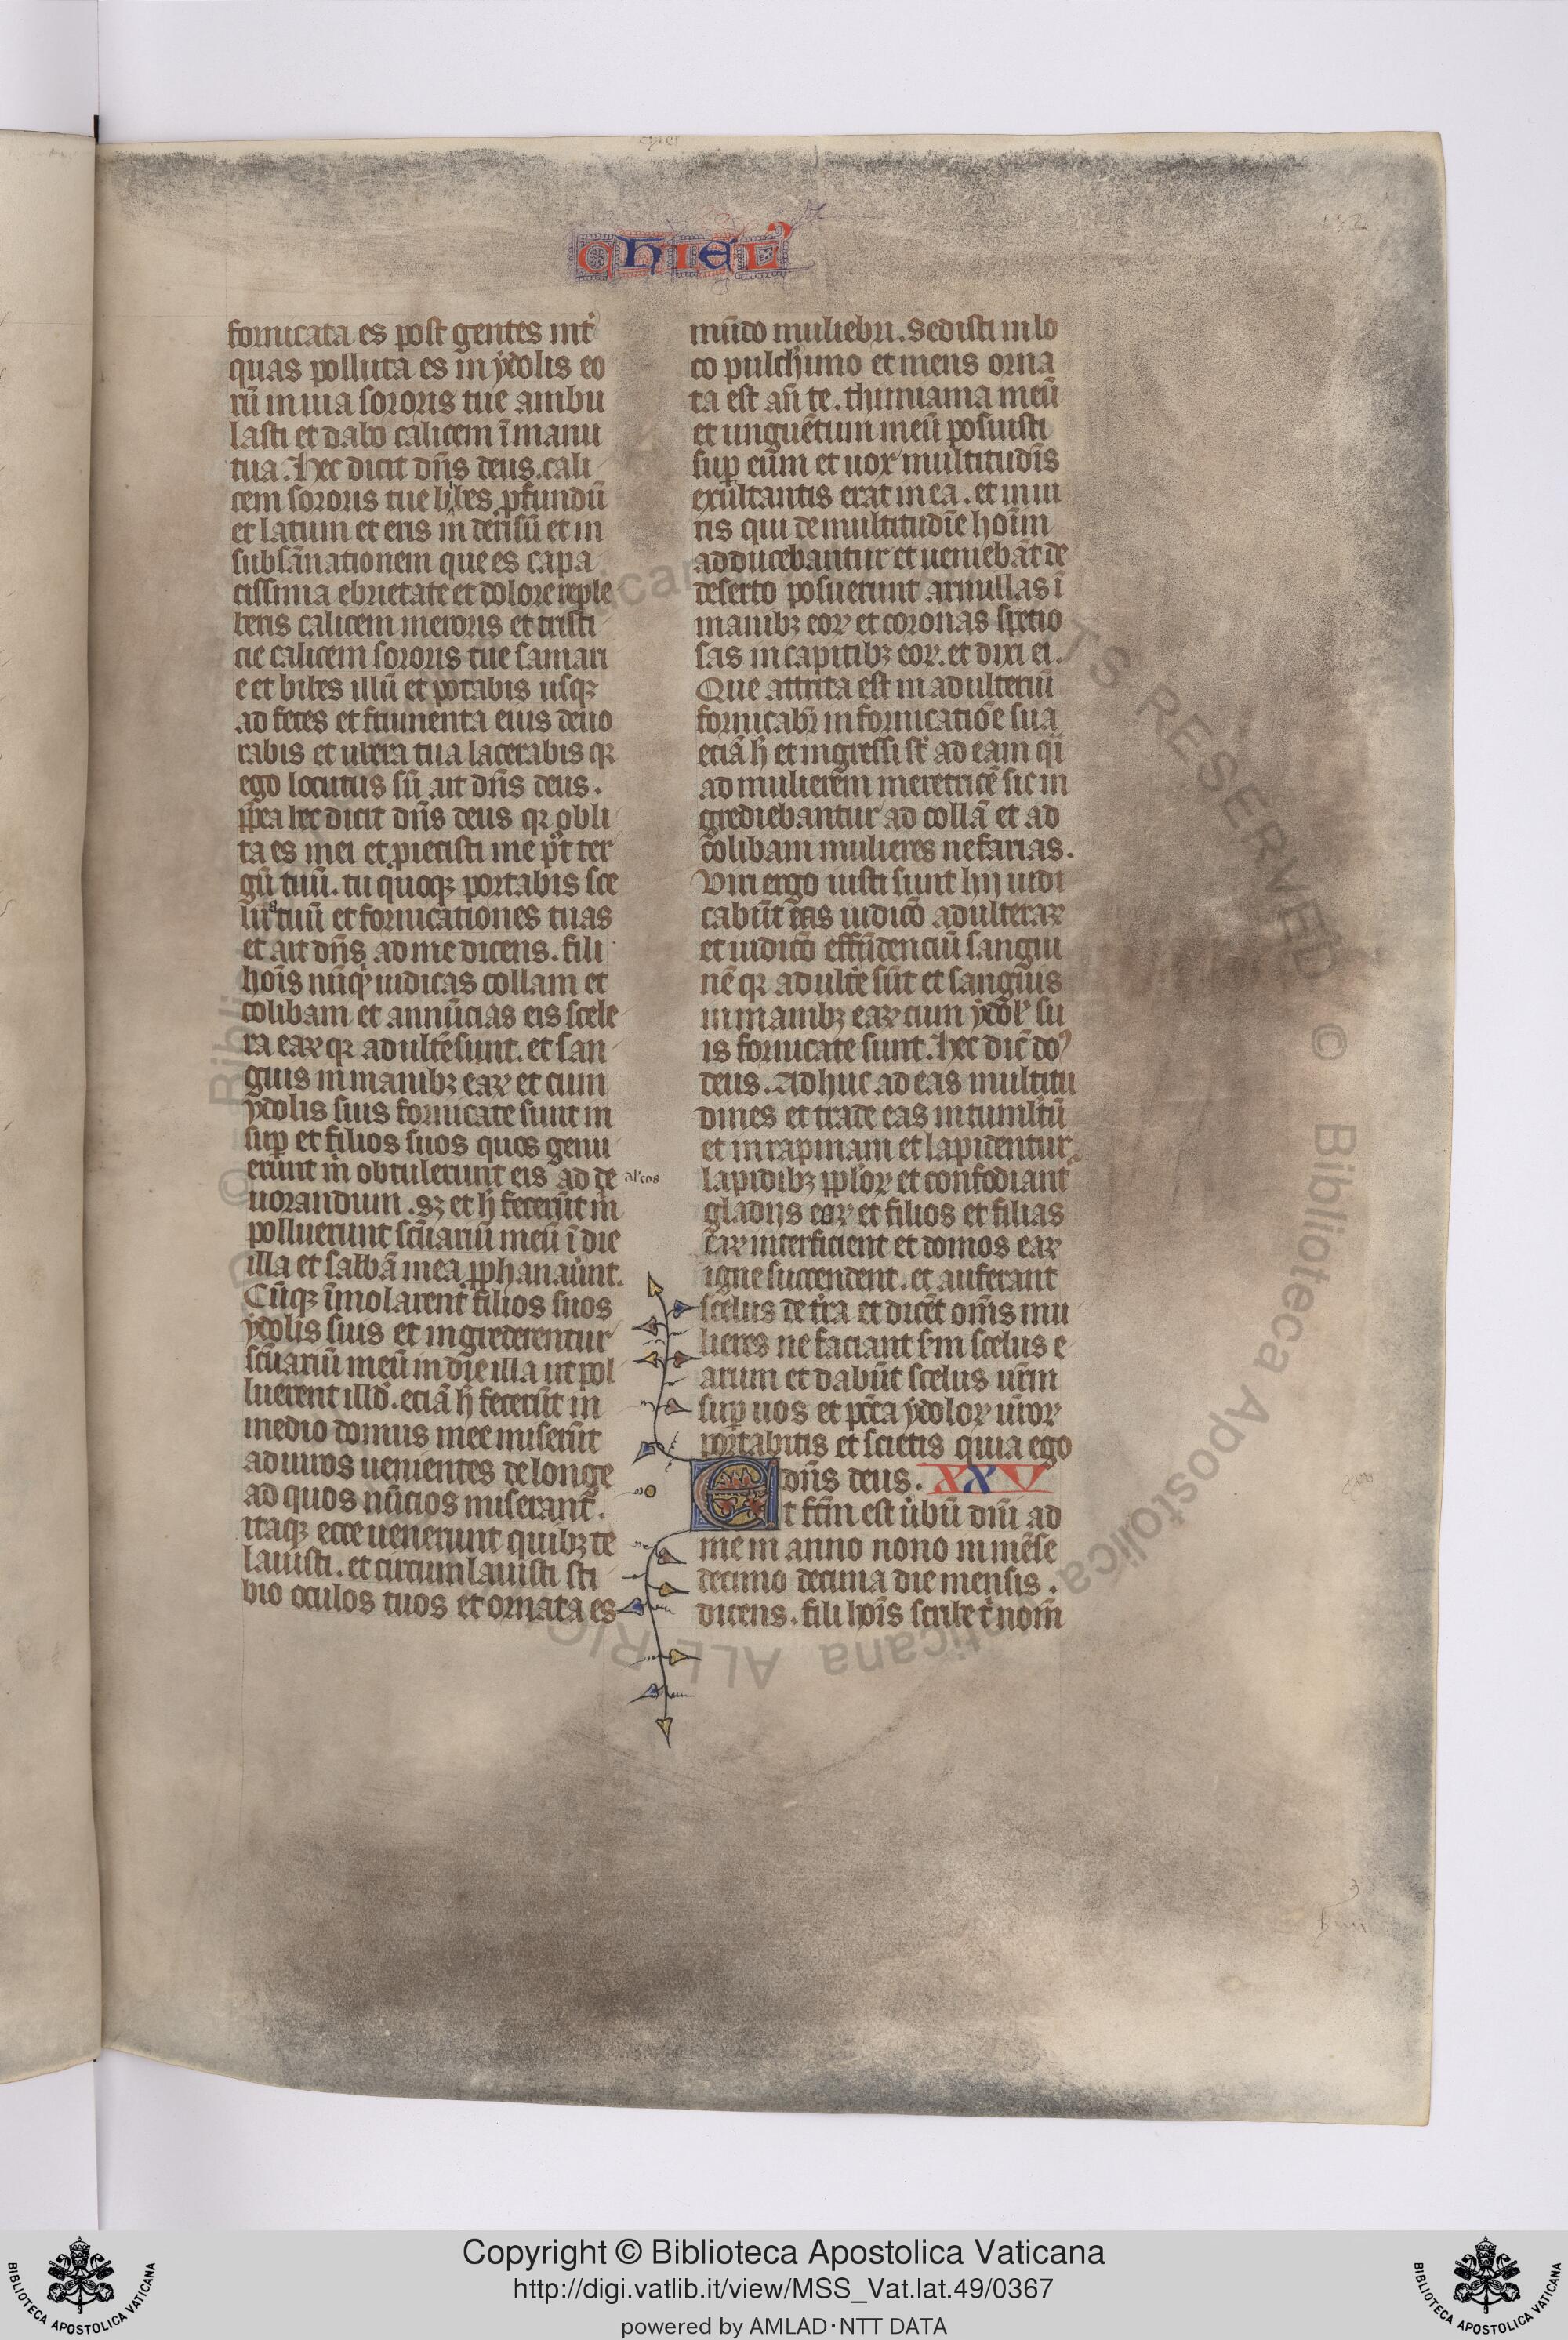 chiel'
fornicata es post gentes int̾
quas polluta es in ydolis eo
rū in uia sororis tue ambu
lasti et dabo calicem ī manu
tua. hec dicit dn̄s deus. cali
cem sororis tue bibes ꝓfundū
et latum et eris in derisū et in
subsānationem que es capa
cissima ebrietate et dolore reple
beris calicem meroris et tristi
cie calicem sororis tue samari
e et bibes illū et potabis usqꝫ
ad feces et frumenta eius deuo
rabis et ubera tua lacerabis qꝛ
ego locutus sū ait dn̄s deus.
ꝓp̄ea hec dicit dn̄s deus qꝛ obli
ta es mei et ꝓiecisti me post ter
gū tuū. tu quoqꝫ portabis sce
lus tuū et fornicationes tuas
et ait dn̄s ad me dicens. fili
hoīs nūqͥd iudicas collam et
colibam et annūcias eis scele
ra eaꝝ qꝛ adult̄e sunt. et san
guis in manibꝫ eaꝝ et cum
ydolis suis fornicate sunt in
suꝑ et filios suos quos genu
erunt m̄ obtulerunt eis ad de
al' eos
uorandum. sꝫ et h̄ fecerūt m̄
polluerunt scūariū meū ī die
illa et sabb̄a mea ꝓphanauūnt.
Cūqꝫ īmolarent filios suos
ydolis suis et ingrederentur
scūariū meū in die illa ut pol
luerent illd̾. eciā h̄ fecerūt in
medio domus mee miserūt
ad uiros uenientes de longe
ad quos nūcios miserant̄.
itaqꝫ ecce uenerunt quibꝫ te
lauisti. et circumlauisti sti
bio oculos tuos et ornata es
mūdo muliebri. Sedisti in lo
co pulcherrimo et mens orna
ta est an̄ te. thimiama meū
et unguētum meū posuisti
suꝑ eum et uox multitudīs
exultantis erat in ea. et in ui
ris qui de multitudīe hoīm
adducebantur et ueniebāt de
deserto posuerunt armillas ī
manibꝫ eoꝝ et coronas specio
sas in capitibꝫ eoꝝ. et dixi ei.
Que attrita est in adulteriū
fornicabit̾ in fornicatiōe sua
eciā h̄ et ingressi st̄ ad eam qͣi
ad mulierem meretricē sic in
grediebantur ad collā et ad
colibam mulieres nefarias.
Viri ergo iusti sunt hij iudi
cabūt eas iudicō adulteraꝝ
et iudicō effūdenciū sangui
nē qꝛ adult̄e sūt et sanguis
in manibꝫ eaꝝ cum ydol̾ su
is fornicate sunt. hec dic̄ do
deus. Adhuc ad eas multitu
dines et trade eas in tumultū
et in rapinam et lapidentur
lapidibꝫ ppl'oꝝ et confodiant̾
gladijs eoꝝ et filios et filias
eaꝝ interficient et domos eaꝝ
igne succendent. et auferant
scelus de t̄ra et dicēt om̄s mu
lieres ne faciant sm̄ scelus e
arum et dabūt scelus ur̄m
suꝑ uos et pcc̄a ydoloꝝ ur̄oꝝ
portabitis et scietis quia ego
dn̄s deus. XXV
Et fc̄m est ūbū dn̄i ad
me in anno nono in mēse
decimo decima die mensis.
dicens. fili hoīs scribe t̾ nom̄
Copyright © Biblioteca Apostolica Vaticana
http://digi.vatlib.it/view/MSS_Vat.lat.49/0367
powered by AMLAD·NTT DATA
BIBLIOTECA APOSTOLICA VATICANA
BIBLIOTECA APOSTOLICA VATICANA